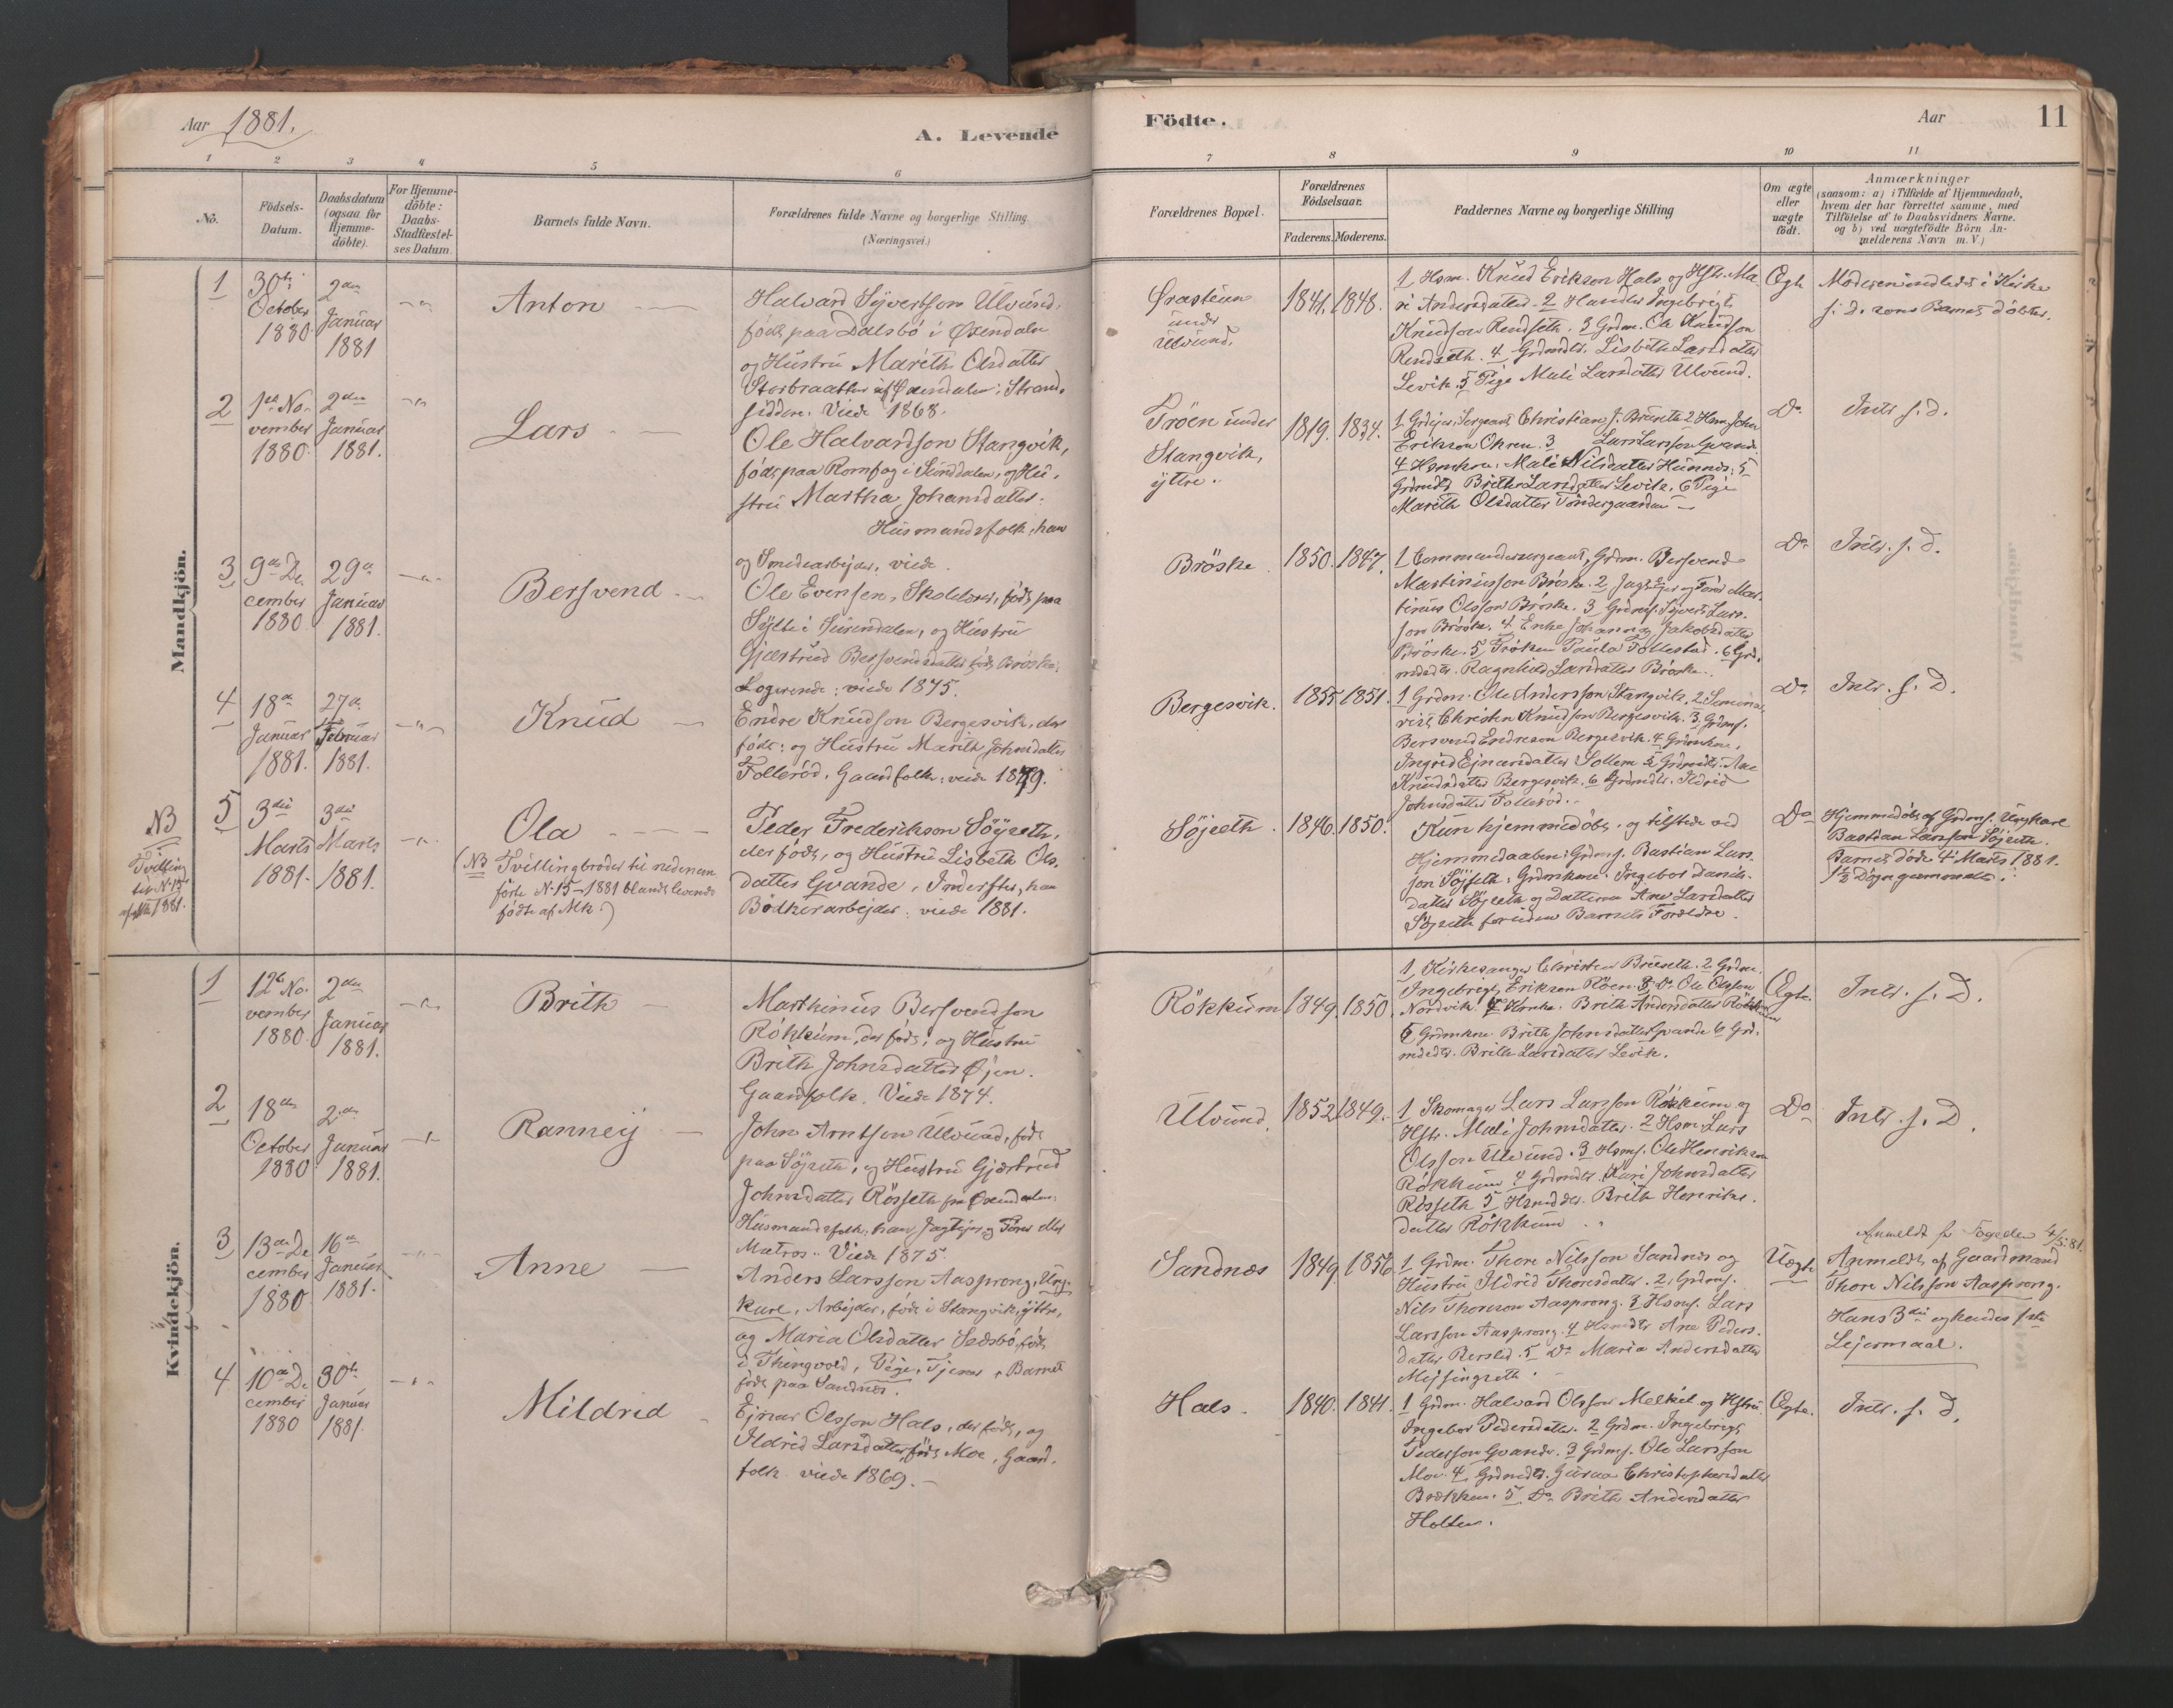 Aar 1881.
A. Levende
Födte.
Aar
11
1
2
3
4
5
6
7
8
9
10
11
No.
Födsels-
Datum.
Daabsdatum
(ogsaa for
Hjemme-
döbte).
For Hjemme-
döbte:
Daabs-
Stadfæstel-
ses Datum.
Barnets fulde Navn.
Forældrenes fulde Navne og borgerlige Stilling
(Næringsvei.)
Forældrenes Bopæl.
Forældrenes
Födselsaar.
Faderens.
Moderens.
Faddernes Navne og borgerlige Stilling
Om ægte
eller
uægte
födt.
Anmærkninger
(saasom: a) i Tilfælde af Hjemmedaab,
hvem der har forrettet samme, med
Tilföielse af to Daabsvidners Navne.
og b) ved uægtefödte Börn An-
melderens Navn m. V.)
Mandkjön.
1
30te
October
1880
2den
Januar
1881
Anton
Halvard Syvertson Ulvund,
födt paa Dalsbö i Öxendalen
og Hustru Marith Olsdatter
Storbraatten af Öxendalen: Strand-
sidder. Viede 1868.
under
Ulvund.
1841.
1848.
1 Hsm. Knud Erikson Hals og Hstr. Ma-
ri Andersdatter. 2 Handler Ingebrigt
Knudson Rendseth. 3 Grdm. Ole Knudson
Rendseth. 4 Grdmdtr. Lisbeth Larsdatter
Levik. 5 Pige Mali Larsdatter Ulvund.
Ægte
Moderen indledet i Kirke
s. D. som Barnet döbtes.
2
1ste No-
vember
1880
2den
Januar
1881.
Lars
Ole Halvardson Stangvik,
födt paa Romfog i Sunddalen, og Hu-
stru Martha Johansdatter.
Husmandsfolk, han
og Smedearbejder, viede
Tröen under
Stangvik,
ytre.
1819.
1834.
1 Grdejer, Sergeant Christian J. Bruseth 2 Hsm. John
Erikson Ohren. 3 Lars Larsson Gvande
4 Hsmkone Mali Nilsdatter Hunnes. 5
Grdmdtr Brith Larsdatter Levik. 6 Pige
Marith Olsdatter Töndergaarden
Do
Intr. s. d.
3
9de De-
cember
1880
29de
Januar
1881.
Bersvend
Ole Evensen, Skolelærer, födt paa
Sylte i Surendalen, og Hustru
Gjertrud Bersvendsdatter födt Bröske.
Logerende: viede 1875.
Bröske
1850.
1847.
1 Commandersergeant, Grdm. Bersvend
Martinusson Bröske. 2 Jagtejer og Förer Mar-
tinus Olsson Bröske. 3 Grdms. Syvert Lars-
son Bröske. 4 Enke Johanna Jakobsdatter
Bröske. 5 Fröken Paula Follestad. 6 Grd-
mdtr. Ragnhild Larsdatter Bröske.
Do
Intr. s. d.
4
18de
Januar
1881.
27de
Februar
1881.
Knud
Endre Knudson Bergesvik, der
födt: og Hustru Marith Johnsdatter
Folleröd. Gaardfolk: viede 1879.
Bergesvik.
1855
1851.
1 Grdm. Ole Andersson Stangvik, 2 Semina-
rist Christen Knudson Bergesvik. 3 Grdms.
Bersvend Endreson Bergesvik. 4 Grdmkone
Ingrid Ejnarsdatter Sollem 5 Grdmdtr. Ane
Knudsdatter Bergesvik. 6 Grdmdtr. Ildrid
Johnsdatter Folleröd.
Do
Intr. s. D.
NB
Tvilling
til No 15
af Mk 1881.
5
3die
Marts
1881.
3die
Marts
1881.
Ola
(NB Tvillingbroder til nedenan-
förte No 15 - 1881 blandt levende
födte af Mk.)
Peder Frederikson Söjseth,
der födt, og Hustru Lisbeth Ols-
datter Gvande, Inderster, han
Bödkerarbejder. viede 1881.
Söjseth
1846.
1850.
Kun hjemmedöbt, og tilstede ved
Hjemmedaaben: Grdms. Bastian Lars-
son Söjseth, Grdmkone. Ingebor Daniels-
datter Söjseth og Datteren Ane Larsdatter
Söjseth foruden Barnets Forældre.
Do
Hjemmedöbt af Grdms. Ungkarl
Bastian Larsson Söjseth.
Barnet döde 4de Marts 1881.
1½ Dögn gammelt.
Kvindekjön.
1
12te No-
vember
1880
2den
Januar
1881.
Brith
Marthinus Bersvendson
Rökkum, der födt, og Hustru
Brith Johnsdatter Öjen.
Gaardfolk. Viede 1874.
Rökkum
1849.
1850.
1 Kirkesanger Christen Bruseth. 2 Grdm.
Ingebrigt Erikson Röen. 3 Do Ole Olsson
Nordvik. 4 Hsmke. Brith Andersdatter Rökkum
5 Grdmkone Brith Johnsdatter Gvande 6 Grd-
mdtr. Brith Larsdatter Levik.
Ægte.
Intr. s. D.
2
18de
October
1880
2den
Januar
1881.
Ranneij
John Arntsen Ulvund, födt
paa Söjseth, og Hustru Gjertrud
Johnsdatter Rösseth fra Öxendalen:
Husmandsfolk, han Jagtejer og Förer eller
Matros. Viede 1875
Ulvund.
1852
1849.
1 Skomager Lars Larsson Rökkum og
Hstr. Mali Johnsdatter. 2 Hsm. Lars
Olsson Ulvund. 3 Hsms. Ole Henrikson
Rökkum 4 Grdmdtr. Kari Johnsdatter
Rösseth 5 Hsmdtr. Brith Henriks-
datter Rökkum
Do
Intr. s. D.
3
13de De-
cember
1880
16de
Januar
1881.
Anne
Anders Larsson Aasprong, Ung-
karl, Arbejder, födt i Stangvik, ytre,
og Maria Olsdatter Sedsbö, födt
i Thingvold, Pige, Tjener, Barnet
födt paa Sandnes.
Sandnæs
1849.
1856
1 Grdm. Thore Nilsson Sandnes og
Hustru Ildrid Thoresdatter. 2 Grdms.
Nils Thoreson Aasprong. 3 Hsms. Lars
Larsson Aasprong. 4 Hsmdtr Ane Peders-
datter 5 Do Maria Andersdatter
Uægte
Anmeldt for Fogden 4/5 81.
Anmeldt af Gaardmand
Thore Nilsson Aasprong.
Hans 3die og hendes 1ste
Lejermaal.
4
10de De-
cember
1880
30te
Januar
1881.
Mildrid
Ejnar Olsson Hals, der födt, og
Ildrid Larsdatter, födt Moe, Gaard-
folk. viede 1869.
Hals
1840.
1841.
1 Grdm. Halvard Olsson Melkild og Hstru
Ingebor Pedersdatter. 2 Grdm. Ingebrigt
Pederson Gvande. 3 Grdms. Ole Larsson
Moe. 4 Grdmdtr. Gurua Christophersdatter
Brækken. 5 Do Brith Andersdatter
Holten.
Ægte.
Intr. s. D.